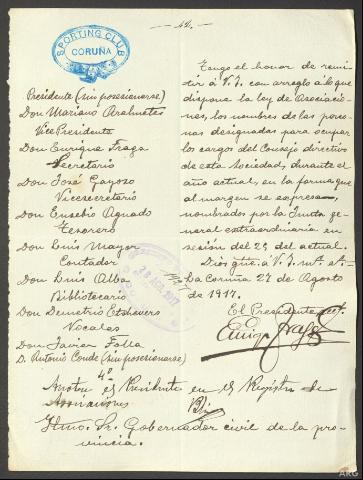 SPORTING CLUB
CORUÑA
Presidente (sin posesionarse)
Don Mariano
Vice Presidente
Don Enrique Fraga
Secretario
Don José Gayoso
Vicesecretario
Don Eusebio Aguado
Tesorero
Don Luis Mayor
Contador
Don Luis Alba
Bibliotecario
Don Demetrio Etchevers
Vocales
Don Javier Folla
D. Antonio Conde (sin posesionarse)
Tengo el honor de remi-
tir á V.I. con arreglo á lo que
dispone la ley de Asociacio-
nes, los nombres de las perso-
nas designadas para ocupar
los cargos del Consejo directivo
de esta Sociedad, durante el
año actual, en la forma que
al margen se expresa,
nombrados por la Junta ge-
neral extraordinaria en
sesión del 25 del actual.
Dios gue. á V.I. ms. as.
La Coruña 27 de Agosto
de 1917.
El Presidente
Enrique Fraga
28 AGO. 1917
4º
Anótese el Presidente en el Registro de
Asociaciones
Iltmo. Sr. Gobernador civil de la pro-
vincia.
ARG